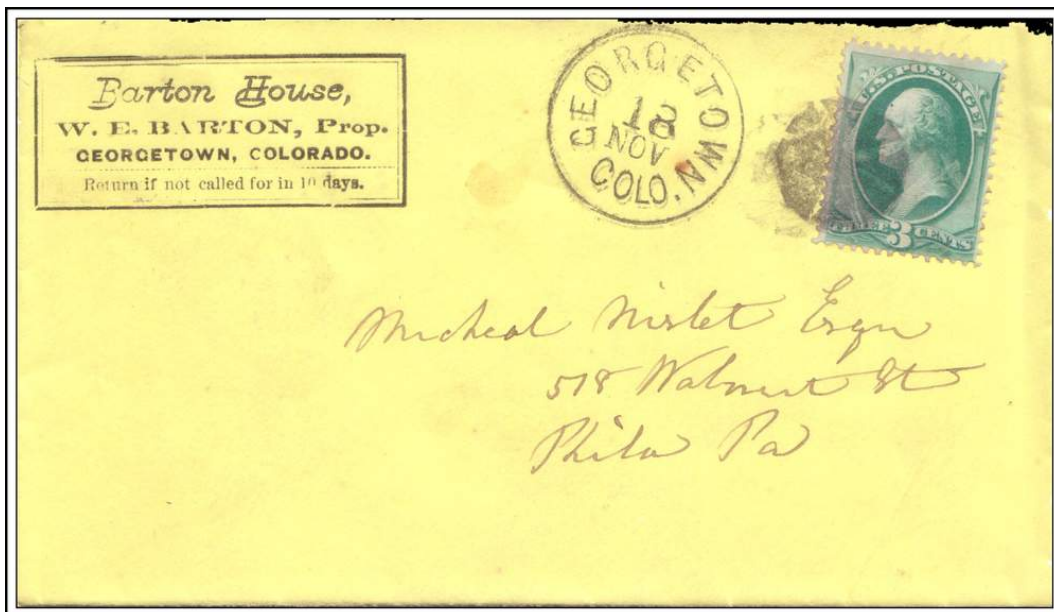 Barton House,
W. E. BARTON, Prop.
GEORGETOWN, COLORADO.
Return if not called for in 10 days.
GEORGETOWN
18
NOV
COLO.
U.S. POSTAGE
THREE 3 CENTS
Micheal Nisbet Esqr
518 Walnut St
Phila Pa